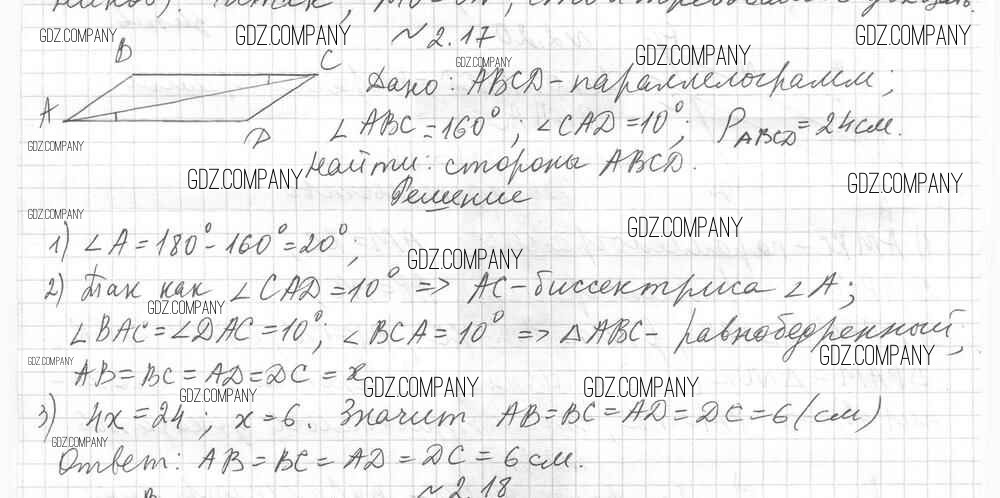 GDZ.COMPANY GDZ.COMPANY GDZ.COMPANY
~ 2.17
B C A D
GDZ.COMPANY GDZ.COMPANY
Дано: ABCD - параллелограмм;
∠ABC = 160°; ∠CAD = 10°; P_ABCD = 24 см.
GDZ.COMPANY
Найти: стороны ABCD.
GDZ.COMPANY GDZ.COMPANY
Решение
GDZ.COMPANY GDZ.COMPANY
1) ∠A = 180° - 160° = 20°;
GDZ.COMPANY
2) Так как ∠CAD = 10° => AC - биссектриса ∠A;
GDZ.COMPANY
∠BAC = ∠DAC = 10°; ∠BCA = 10° => △ABC - равнобедренный;
GDZ.COMPANY GDZ.COMPANY
AB = BC = AD = DC = x
GDZ.COMPANY GDZ.COMPANY GDZ.COMPANY
3) 4x = 24; x = 6. Значит AB = BC = AD = DC = 6 (см)
GDZ.COMPANY
Ответ: AB = BC = AD = DC = 6 см.
B ~ 2.18